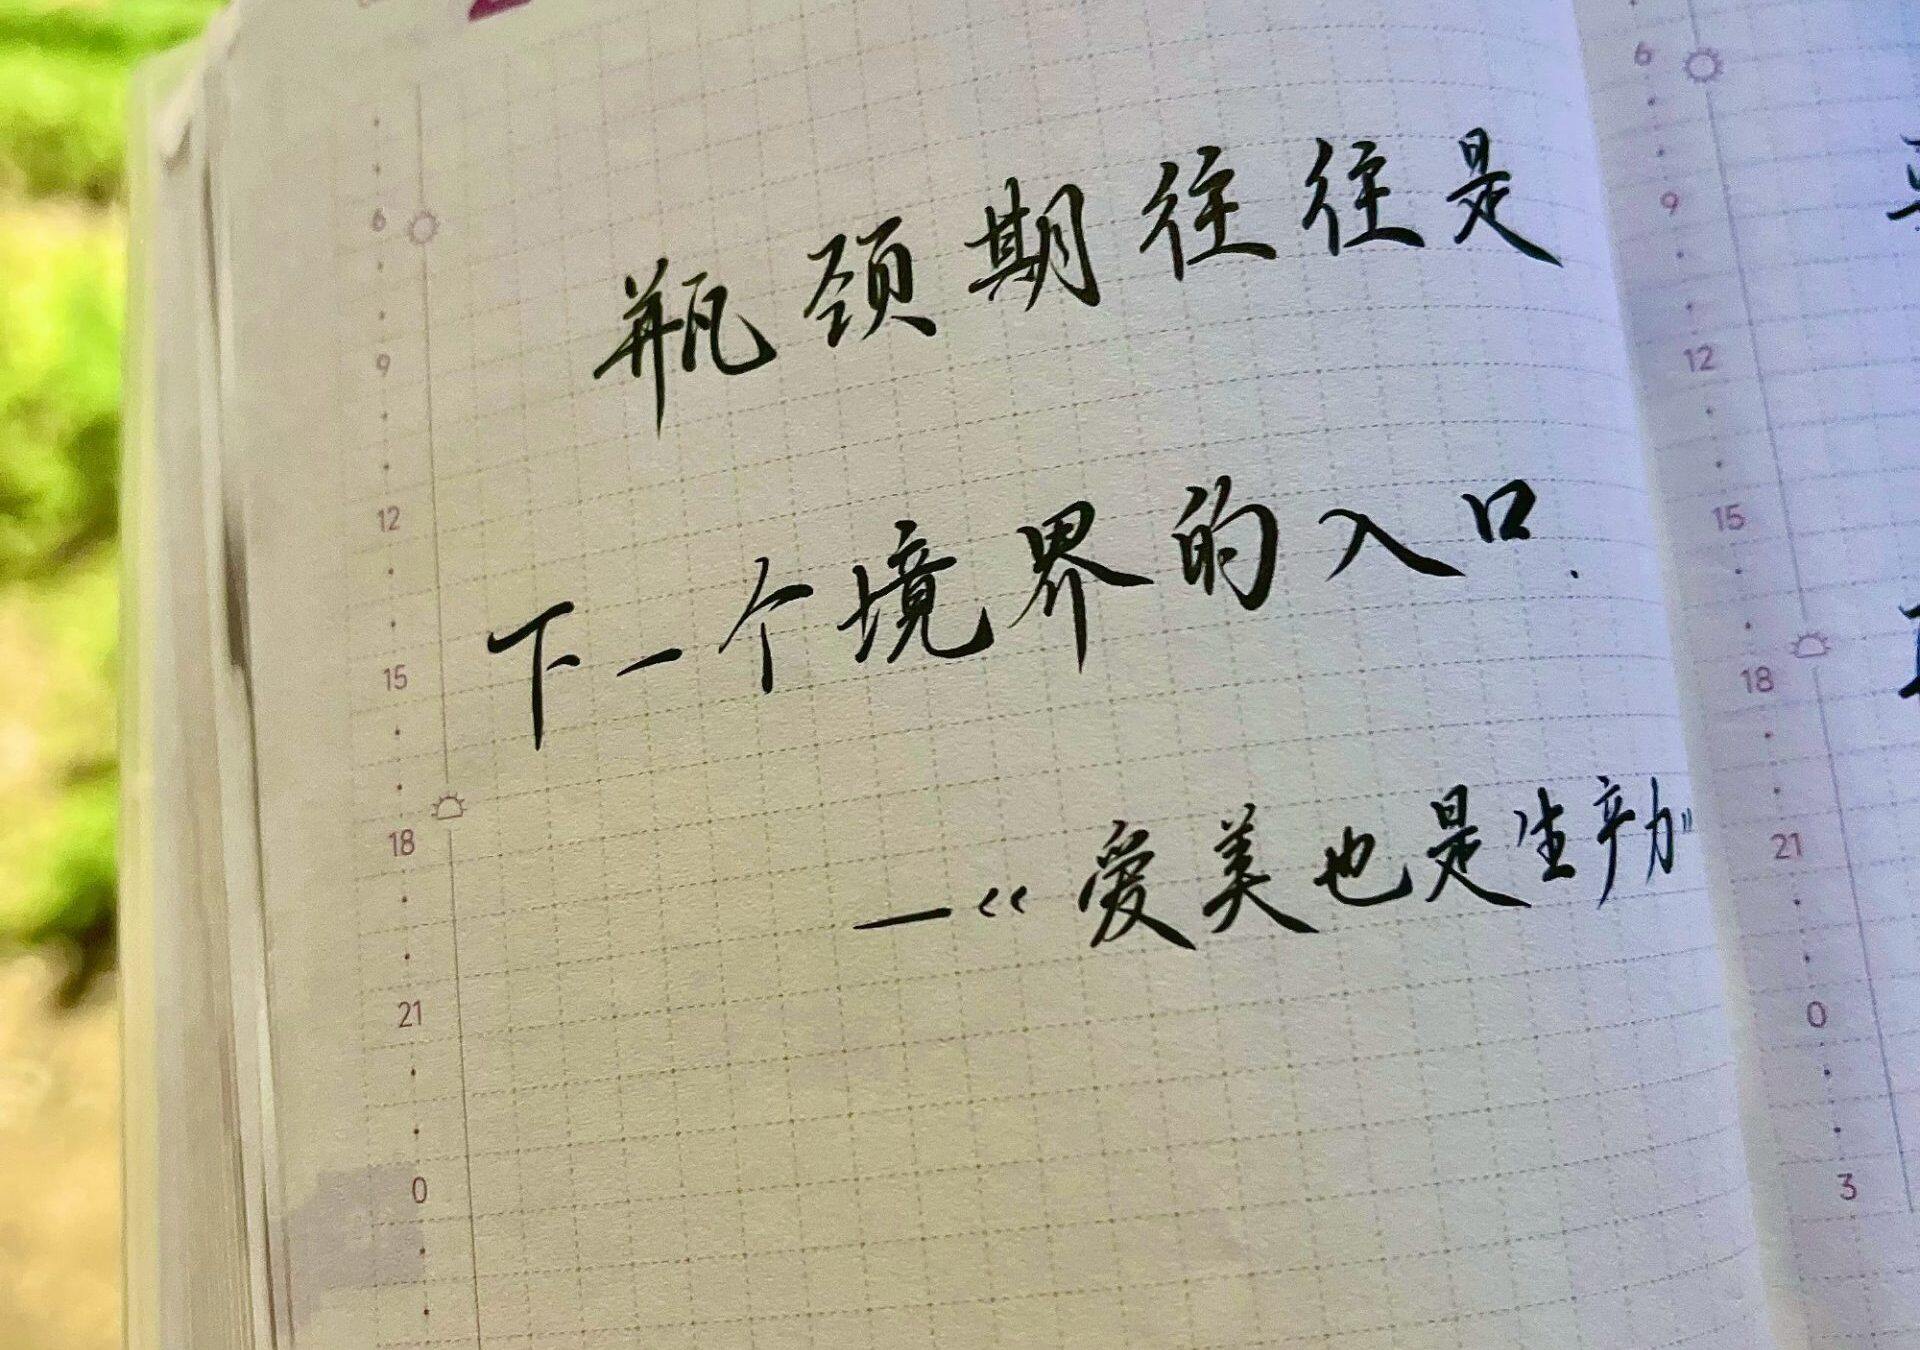 瓶颈期往往是
下一个境界的入口.
—《爱美也是生产力》
6
9
12
15
18
21
0
6
9
12
15
18
21
0
3